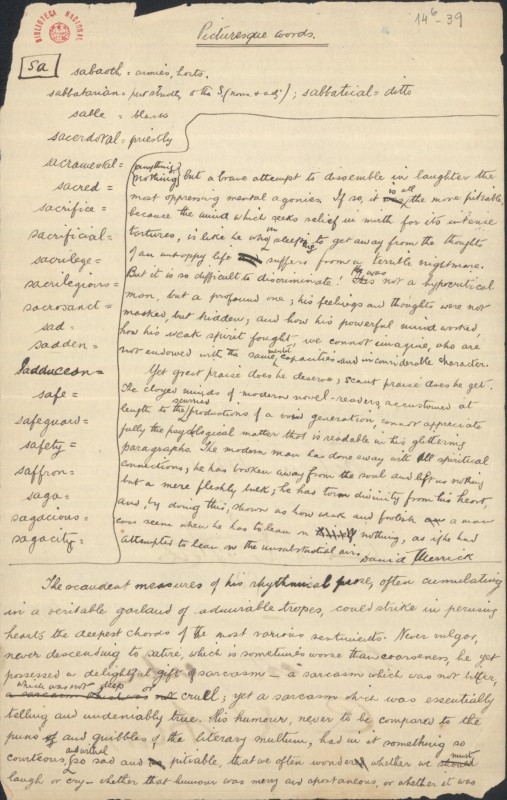 BIBLIOTECA NACIONAL
14⁶-39
Picturesque words.
Sa
sabaoth = armies, hosts.
sabbatarian = pert. strictly o the S (noun & adj); sabbatical = ditto
sable = black
sacerdotal = priestly
sacramental =
sacred =
sacrifice =
sacrificial =
sacrilege =
sacrilegious =
sacrosanct =
sad =
sadden =
Sadducean =
safe =
safeguard =
safety =
saffron =
saga =
sagacious =
sagacity =
anything
nothing but a brave attempt to dissemble in laughter the
most oppressing mental agonies. If so, it is all the more pitiable,
because the mind which seeks relief in mirth for its intense
tortures, is like he who in sleeping to get away from the thoughts
of an unhappy life suffers from a terrible nightmare.
But it is so difficult to discriminate! He was not a hypocritical
man, but a profound one; his feelings and thoughts were not
masked, but hidden; and how his powerful mind worked,
how his weak spirit fought – we cannot imagine, who are
not endowed with the same mental capacities and inconsiderable character.
Yet great praise does he deserve; scant praise does he get.
The cloyed minds of modern novel-readers, accustomed at
length to the productions of a generation, cannot appreciate
fully the psychological matter that is readable in his glittering
paragraphs. The modern man has done away with all spiritual
connections; he has broken away from the soul and left us nothing
but a mere fleshly bulk; he has torn divinity from his heart,
and, by doing this, shown us how weak and foolish a man
can seem when he has to lean on nothing, as if he had
attempted to lean on the unsubstantial air.
David Merrick
The scandent measures of his rhythmical prose, often cumulating
in a veritable garland of admirable tropes, could strike in perusing
hearts the deepest chords of the most various sentiments. Never vulgar,
never descending to satire, which is sometimes worse than coarseness, he yet
possessed a delightful gift of sarcasm – a sarcasm which was not bitter,
which was not deep or
a sarcasm which was not cruel; yet a sarcasm which was essentially
telling and undeniably true. His humour, never to be compared to the
puns and quibbles of the literary multum, had in it something so
courteous, so sad and so pitiable, that we often wonder whether we must
laugh or cry – whether that humour was merry and spontaneous, or whether it was